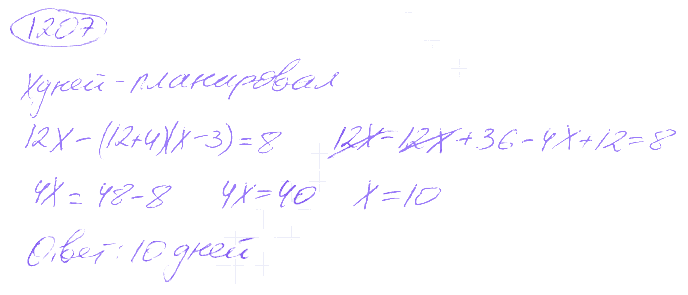 1207
X дней - планировал
12X - (12+4)(X-3) = 8 12X - 12X + 36 - 4X + 12 = 8
4X = 48 - 8 4X = 40 X = 10
Ответ: 10 дней